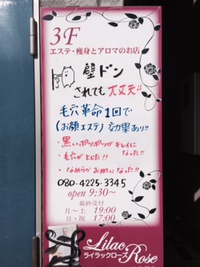 3F
エステ・痩身とアロマのお店
壁ドン
されても大丈夫!!
毛穴革命1回で
(お顔エステ)効果あり!!
黒いポツポツがキレイに
なった!!
・毛穴がとじた!!
・なめらかなお肌になった!!
080-4225-3345
open 9:30~
最終受付
月~土 19:00
日・祝 17:00
Lilac
ライラックローズ
Rose